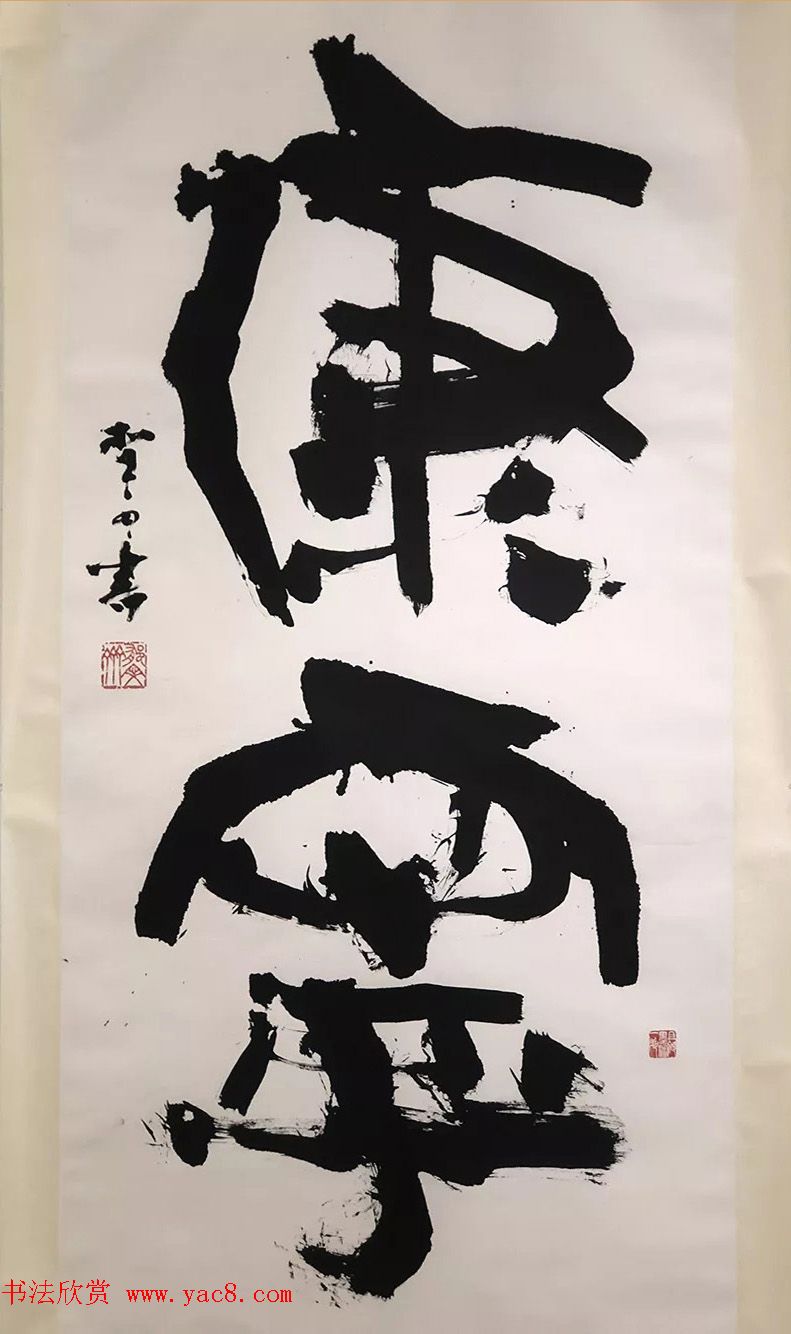 康寧
書
书法欣赏 www.yac8.com